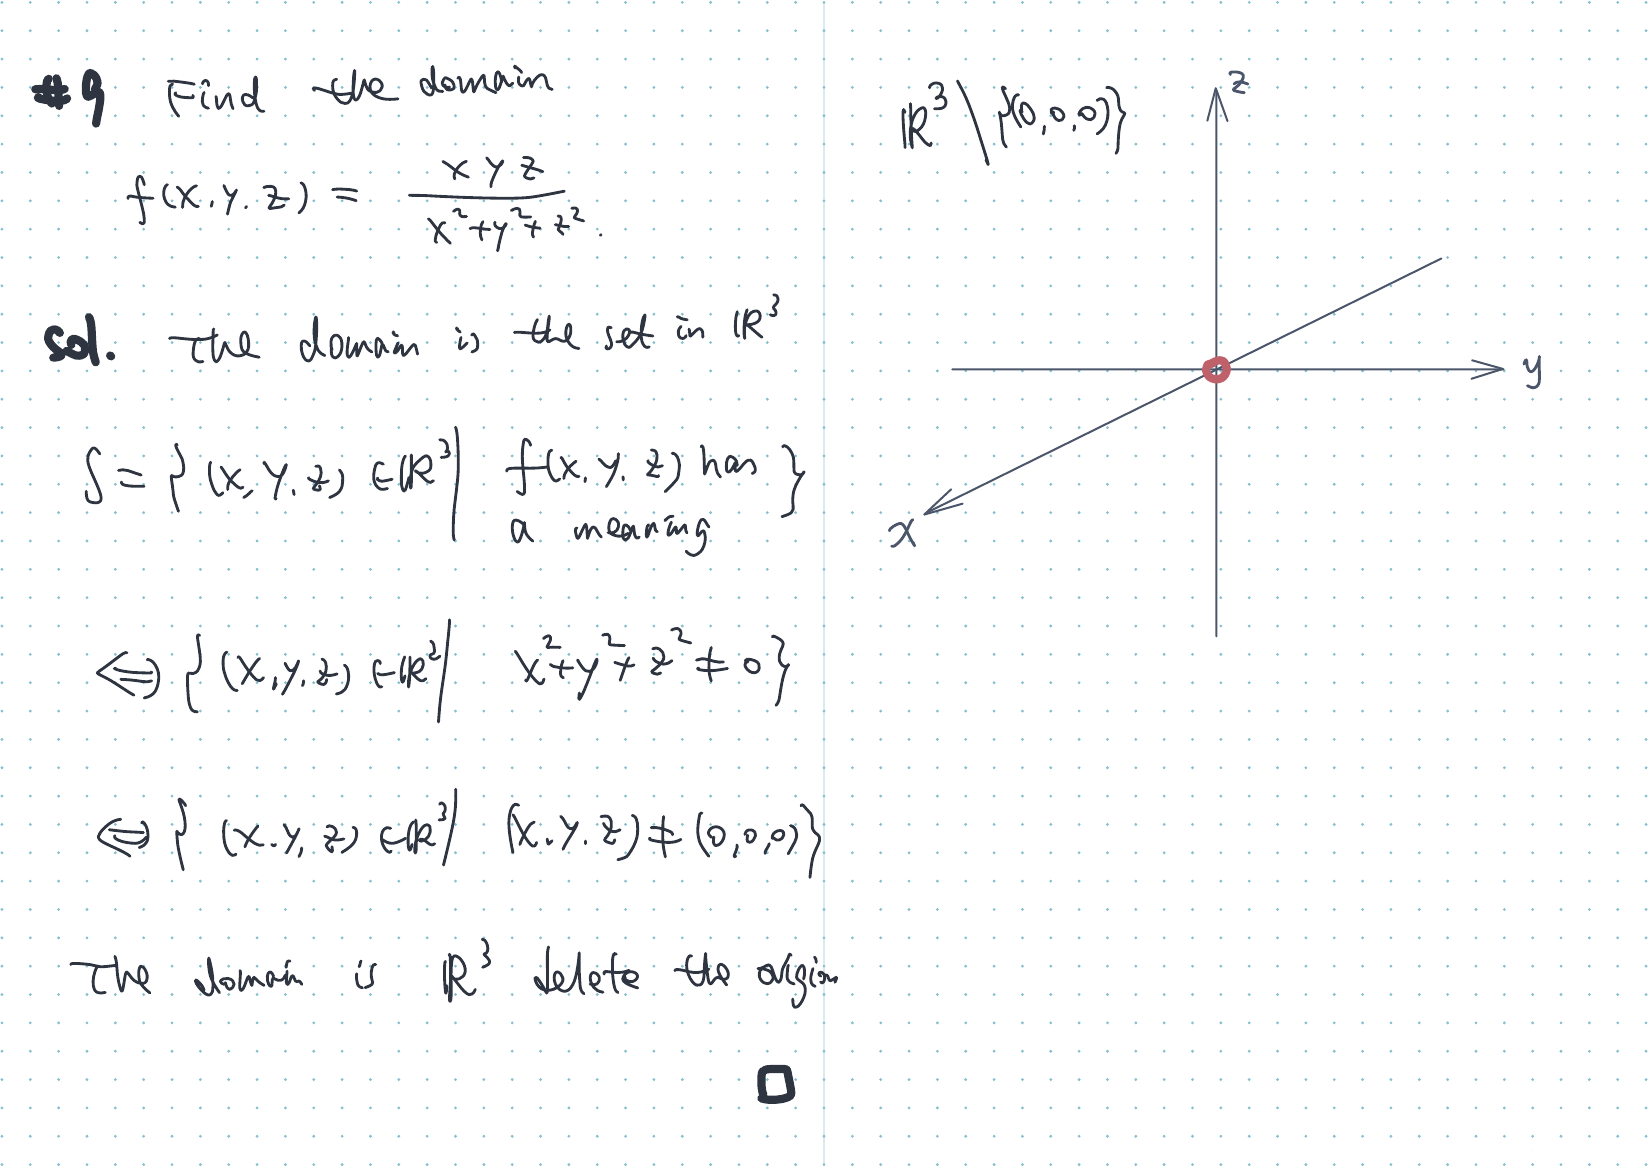 #9 Find the domain
f(x.y.z) = xyz / x²+y²+z².
sol. The domain is the set in ℝ³
S = {(x,y.z) ∈ ℝ³ | f(x.y.z) has
a meaning }
⇔ {(x,y,z) ∈ ℝ² | x²+y²+z² ≠ 0}
⇔ {(x.y,z) ∈ ℝ³ | (x.y.z) ≠ (0,0,0)}
The domain is ℝ³ delete the origin
□
ℝ³ \ {(0,0,0)}
z
y
x